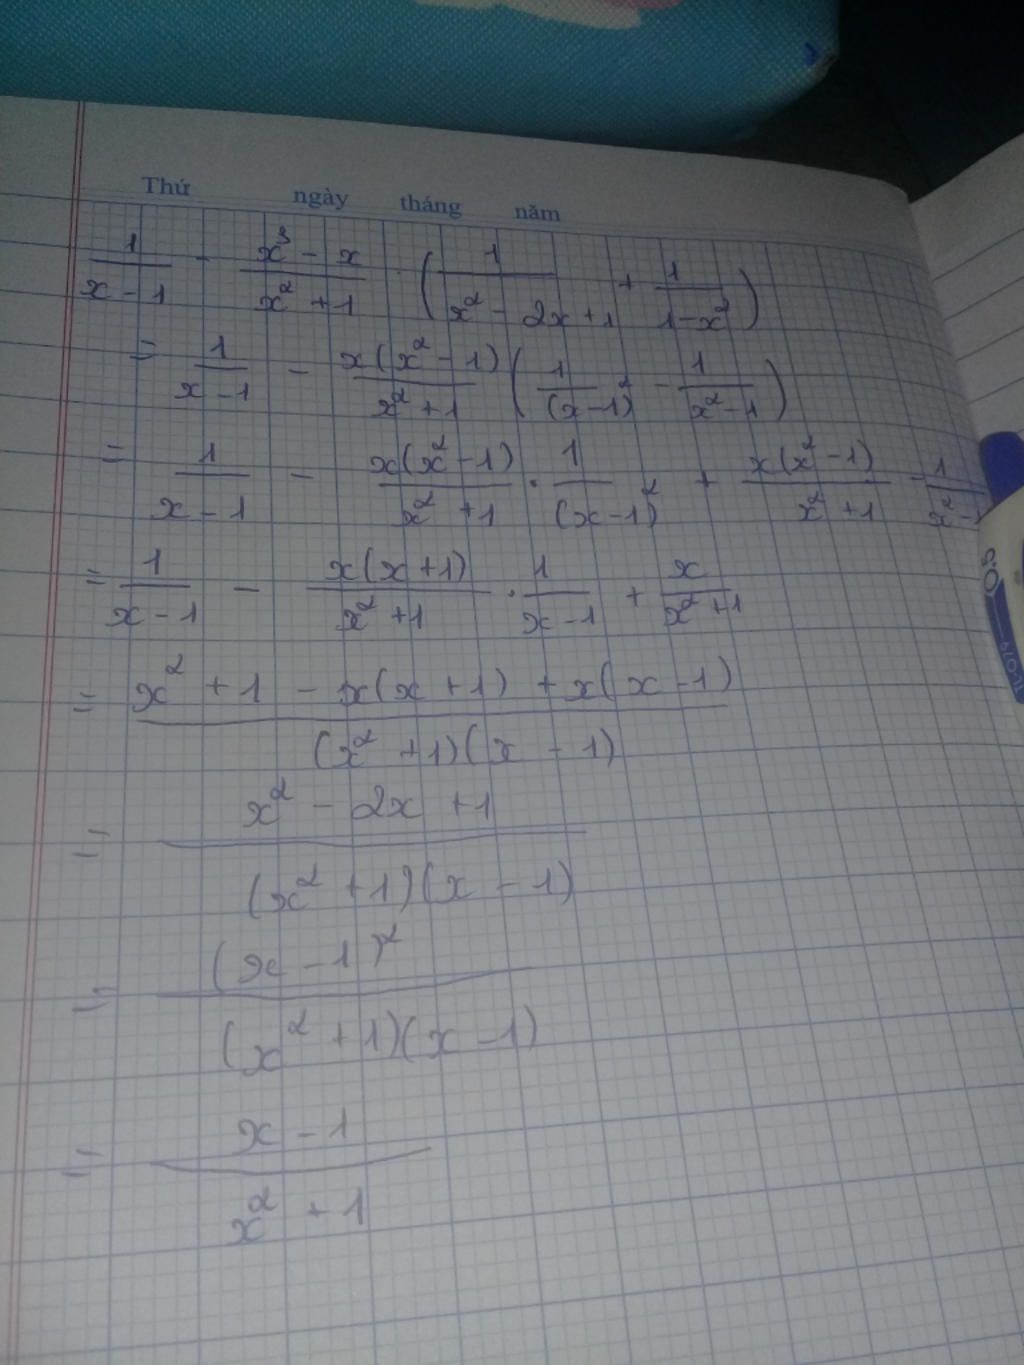 Thứ ngày tháng năm
1/(x - 1) - (x³ - x)/(x² + 1) · (1/(x² - 2x + 1) + 1/(1 - x²))
= 1/(x - 1) - x(x² - 1)/(x² + 1) (1/(x - 1)² - 1/(x² - 1))
= 1/(x - 1) - x(x² - 1)/(x² + 1) · 1/(x - 1)² + x(x² - 1)/(x² + 1) · 1/(x² -
= 1/(x - 1) - x(x + 1)/(x² + 1) · 1/(x - 1) + x/(x² + 1)
= (x² + 1 - x(x + 1) + x(x - 1))/((x² + 1)(x - 1))
= (x² - 2x + 1)/((x² + 1)(x - 1))
= (x - 1)²/((x² + 1)(x - 1))
= (x - 1)/(x² + 1)
0.5